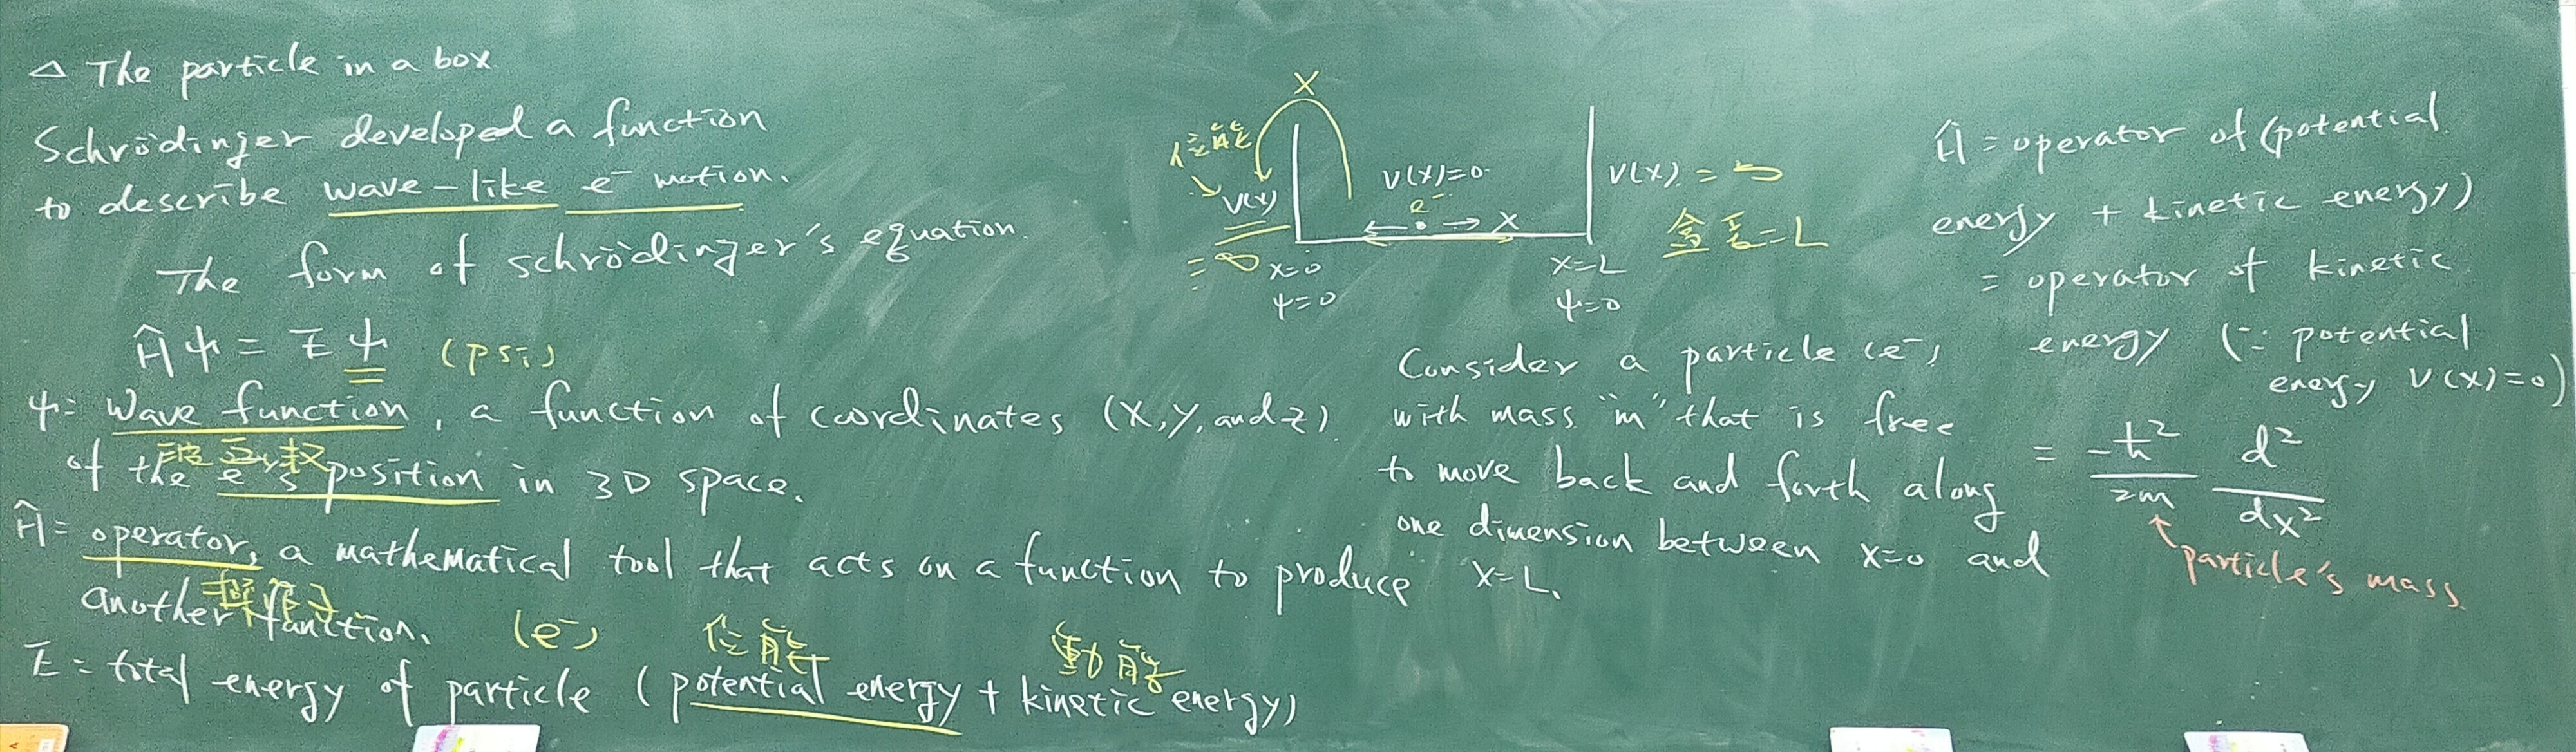 △ The particle in a box
Schrödinger developed a function
to describe wave-like e⁻ motion.
The form of schrödinger's equation.
Ĥψ = Eψ (psi)
ψ= Wave function, a function of coordinates (X,y,and z)
波函數
of the e⁻'s position in 3D space.
Ĥ= operator, a mathematical tool that acts on a function to produce
操作子
another function.
(e⁻) 位能 動能
E = total energy of particle (potential energy + kinetic energy)
X
位能
V(X)
= ∞
V(X)=0
e⁻
X
V(X) =
盒長=L
X=0
ψ=0
X=L
ψ=0
Consider a particle (e⁻)
with mass "m" that is free
to move back and forth along
one dimension between X=0 and
X=L.
Ĥ = operator of (potential
energy + kinetic energy)
= operator of kinetic
energy (∵ potential
energy V(X)=0)
= -ħ²/2m d²/dx²
↑
particle's mass